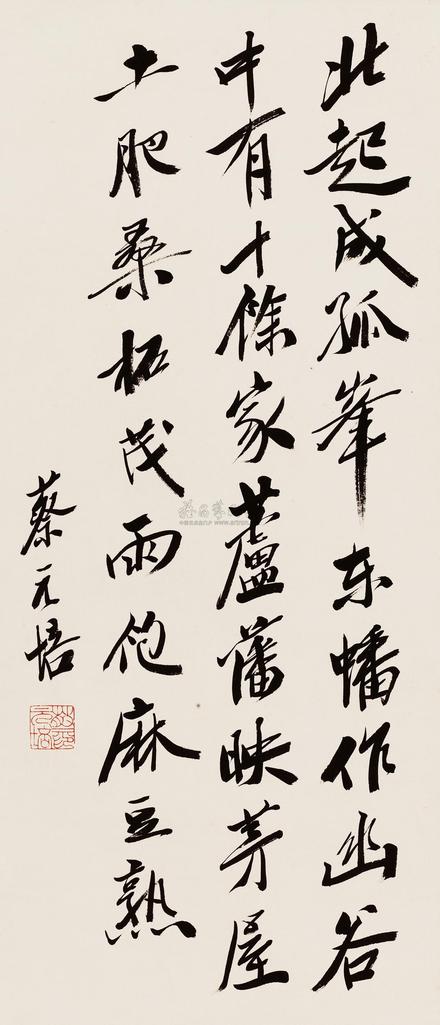 北起成孤峯東蟠作幽谷
中有十餘家蘆藩映茅屋
土肥桑柘茂雨飽麻豆熟
蔡元培